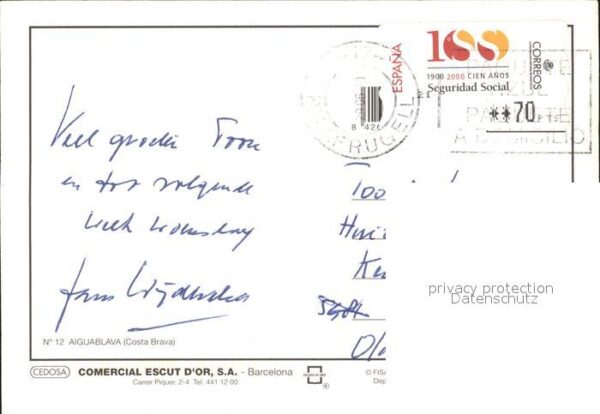 ESPAÑA
100
1900 2000 CIEN AÑOS
Seguridad Social
CORREOS
**70 PTS
PALAFRUGELL
8 426
Veel groeten Toon
en tot volgende
week woensdag
Hans
Too
Hui
Ke
privacy protection
Datenschutz
Nº 12 AIGUABLAVA (Costa Brava)
CEDOSA
COMERCIAL ESCUT D'OR, S.A. - Barcelona
Carrer Piquer, 2-4. Tel. 441 12 00
© FISA
Dep